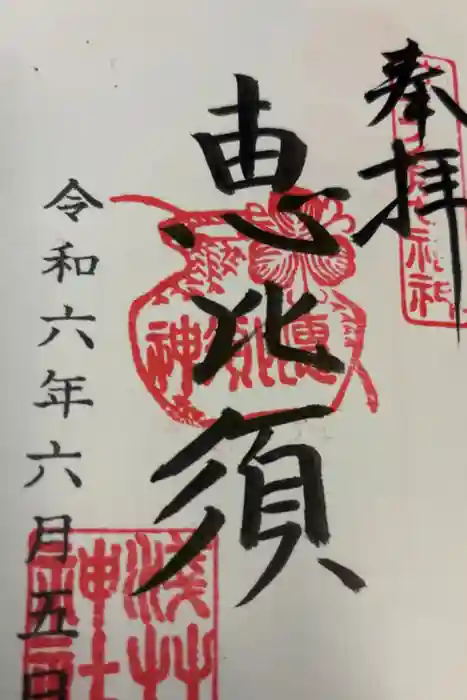 奉拝
恵比須
令和六年六月五日
浅草
神社